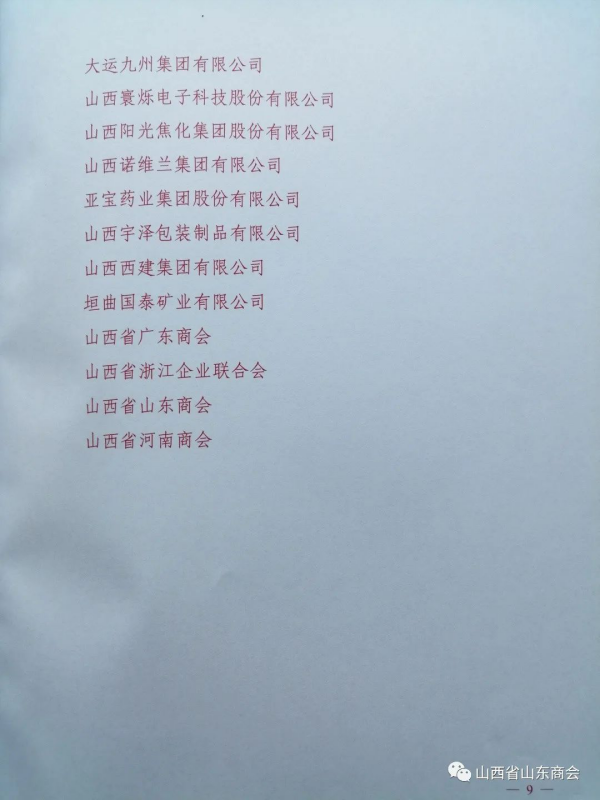 大运九州集团有限公司
山西寰烁电子科技股份有限公司
山西阳光焦化集团股份有限公司
山西诺维兰集团有限公司
亚宝药业集团股份有限公司
山西宇泽包装制品有限公司
山西西建集团有限公司
垣曲国泰矿业有限公司
山西省广东商会
山西省浙江企业联合会
山西省山东商会
山西省河南商会
山西省山东商会
— 9 —